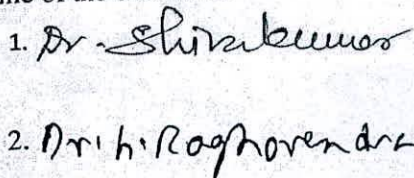 1. Dr. Shivakumar
2. Dr. h. Raghavendra